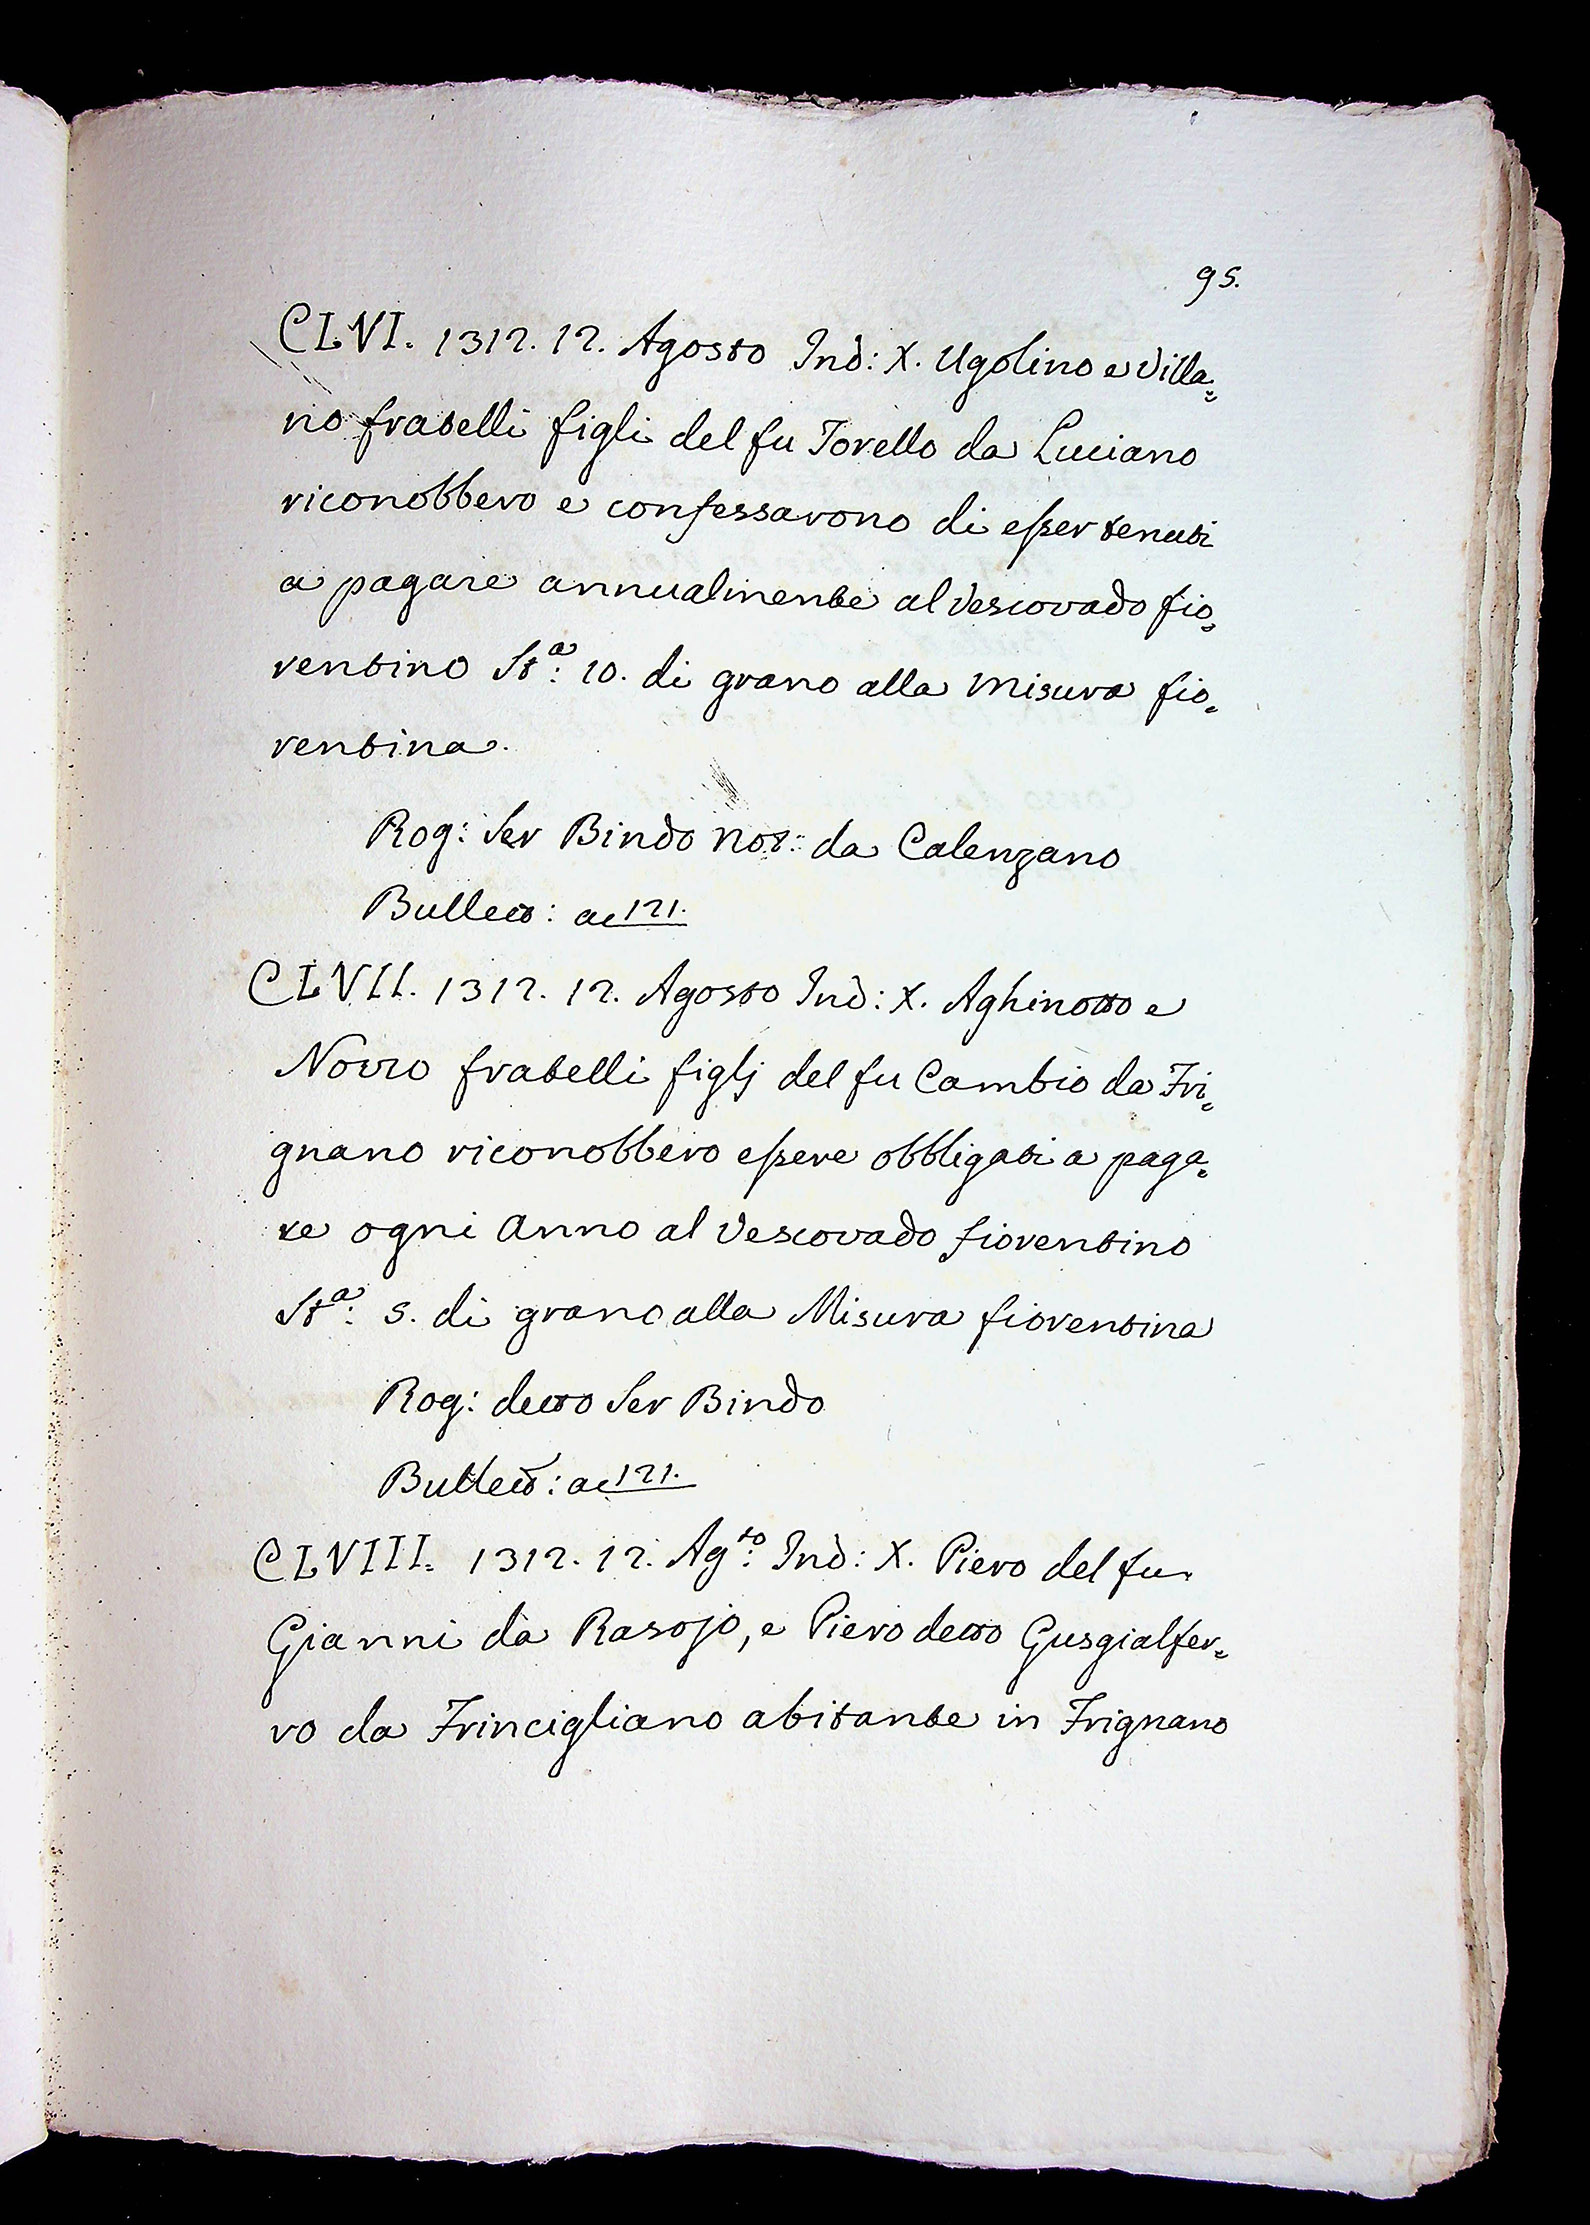 95.
CLVI. 1312. 12. Agosto Ind: X. Ugolino e Villa=
no fratelli figli del fu Torello da Luciano
riconobbero e confessarono di esser tenuti
a pagare annualmente al Vescovado fio=
rentino Stª: 10. di grano alla Misura fio=
rentina.
Rog: Ser Bindo Not: da Calenzano
Bullett: ac 121.
CLVII. 1312. 12. Agosto Ind: X. Aghinotto e
fratelli figlj del fu Cambio da Tri=
gnano riconobbero essere obbligati a paga=
re ogni Anno al Vescovado fiorentino
Stª: 5. di grano alla Misura fiorentina
Rog: detto Ser Bindo
Bullett: ac 121.
CLVIII. 1312. 12. Agᵗᵒ: Ind: X. Piero del fu
Gianni da Rasojo, e Piero detto Gusgialfer=
ro da Trincigliano abitante in Trignano